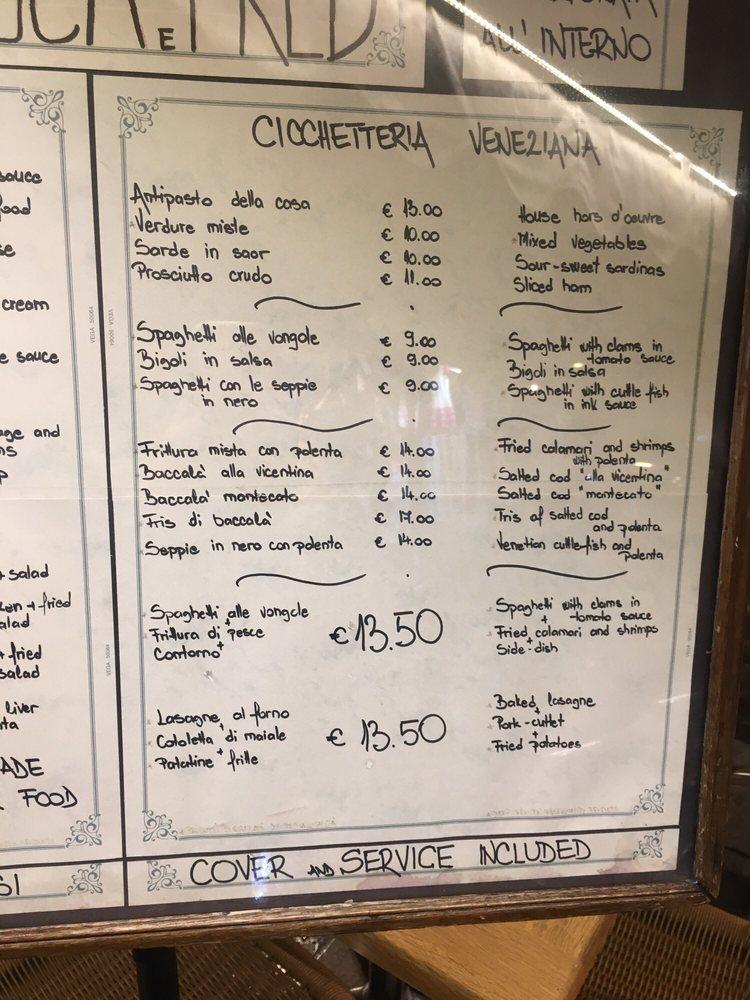 E FRED
ALL' INTERNO
sauce
food
cream
sauce
and
+ salad
+ fried
salad
+ fried
salad
liver
FOOD
CICCHETTERIA VENEZIANA
Antipasto della casa € 13.00 House hors d'oeuvre
Verdure miste € 10.00 Mixed vegetables
Sarde in saor € 10.00 Sour-sweet sardinas
Prosciutto crudo € 11.00 Sliced ham
Spaghetti alle vongole € 9.00 Spaghetti with clams in
tomato sauce
Bigoli in salsa € 9.00 Bigoli in salsa
Spaghetti con le seppie € 9.00 Spaghetti with cuttle fish
in nero in ink sauce
Frittura mista con polenta € 14.00 Fried calamari and shrimps
with polenta
Baccala' alla vicentina € 14.00 Salted cod "alla vicentina"
Baccala' mantecato € 14.00 Salted cod "mantecato"
Tris di baccala' € 17.00 Tris of salted cod
and polenta
Seppie in nero con polenta € 14.00 Venetian cuttle-fish and
polenta
Spaghetti alle vongole Spaghetti with clams in
+ + tomato sauce
Frittura di pesce € 13.50 Fried calamari and shrimps
+ +
Contorno Side-dish
Lasagne al forno Baked lasagne
+ +
Cotoletta di maiale € 13.50 Pork-cutlet
+ +
Patatine fritte Fried potatoes
COVER AND SERVICE INCLUDED